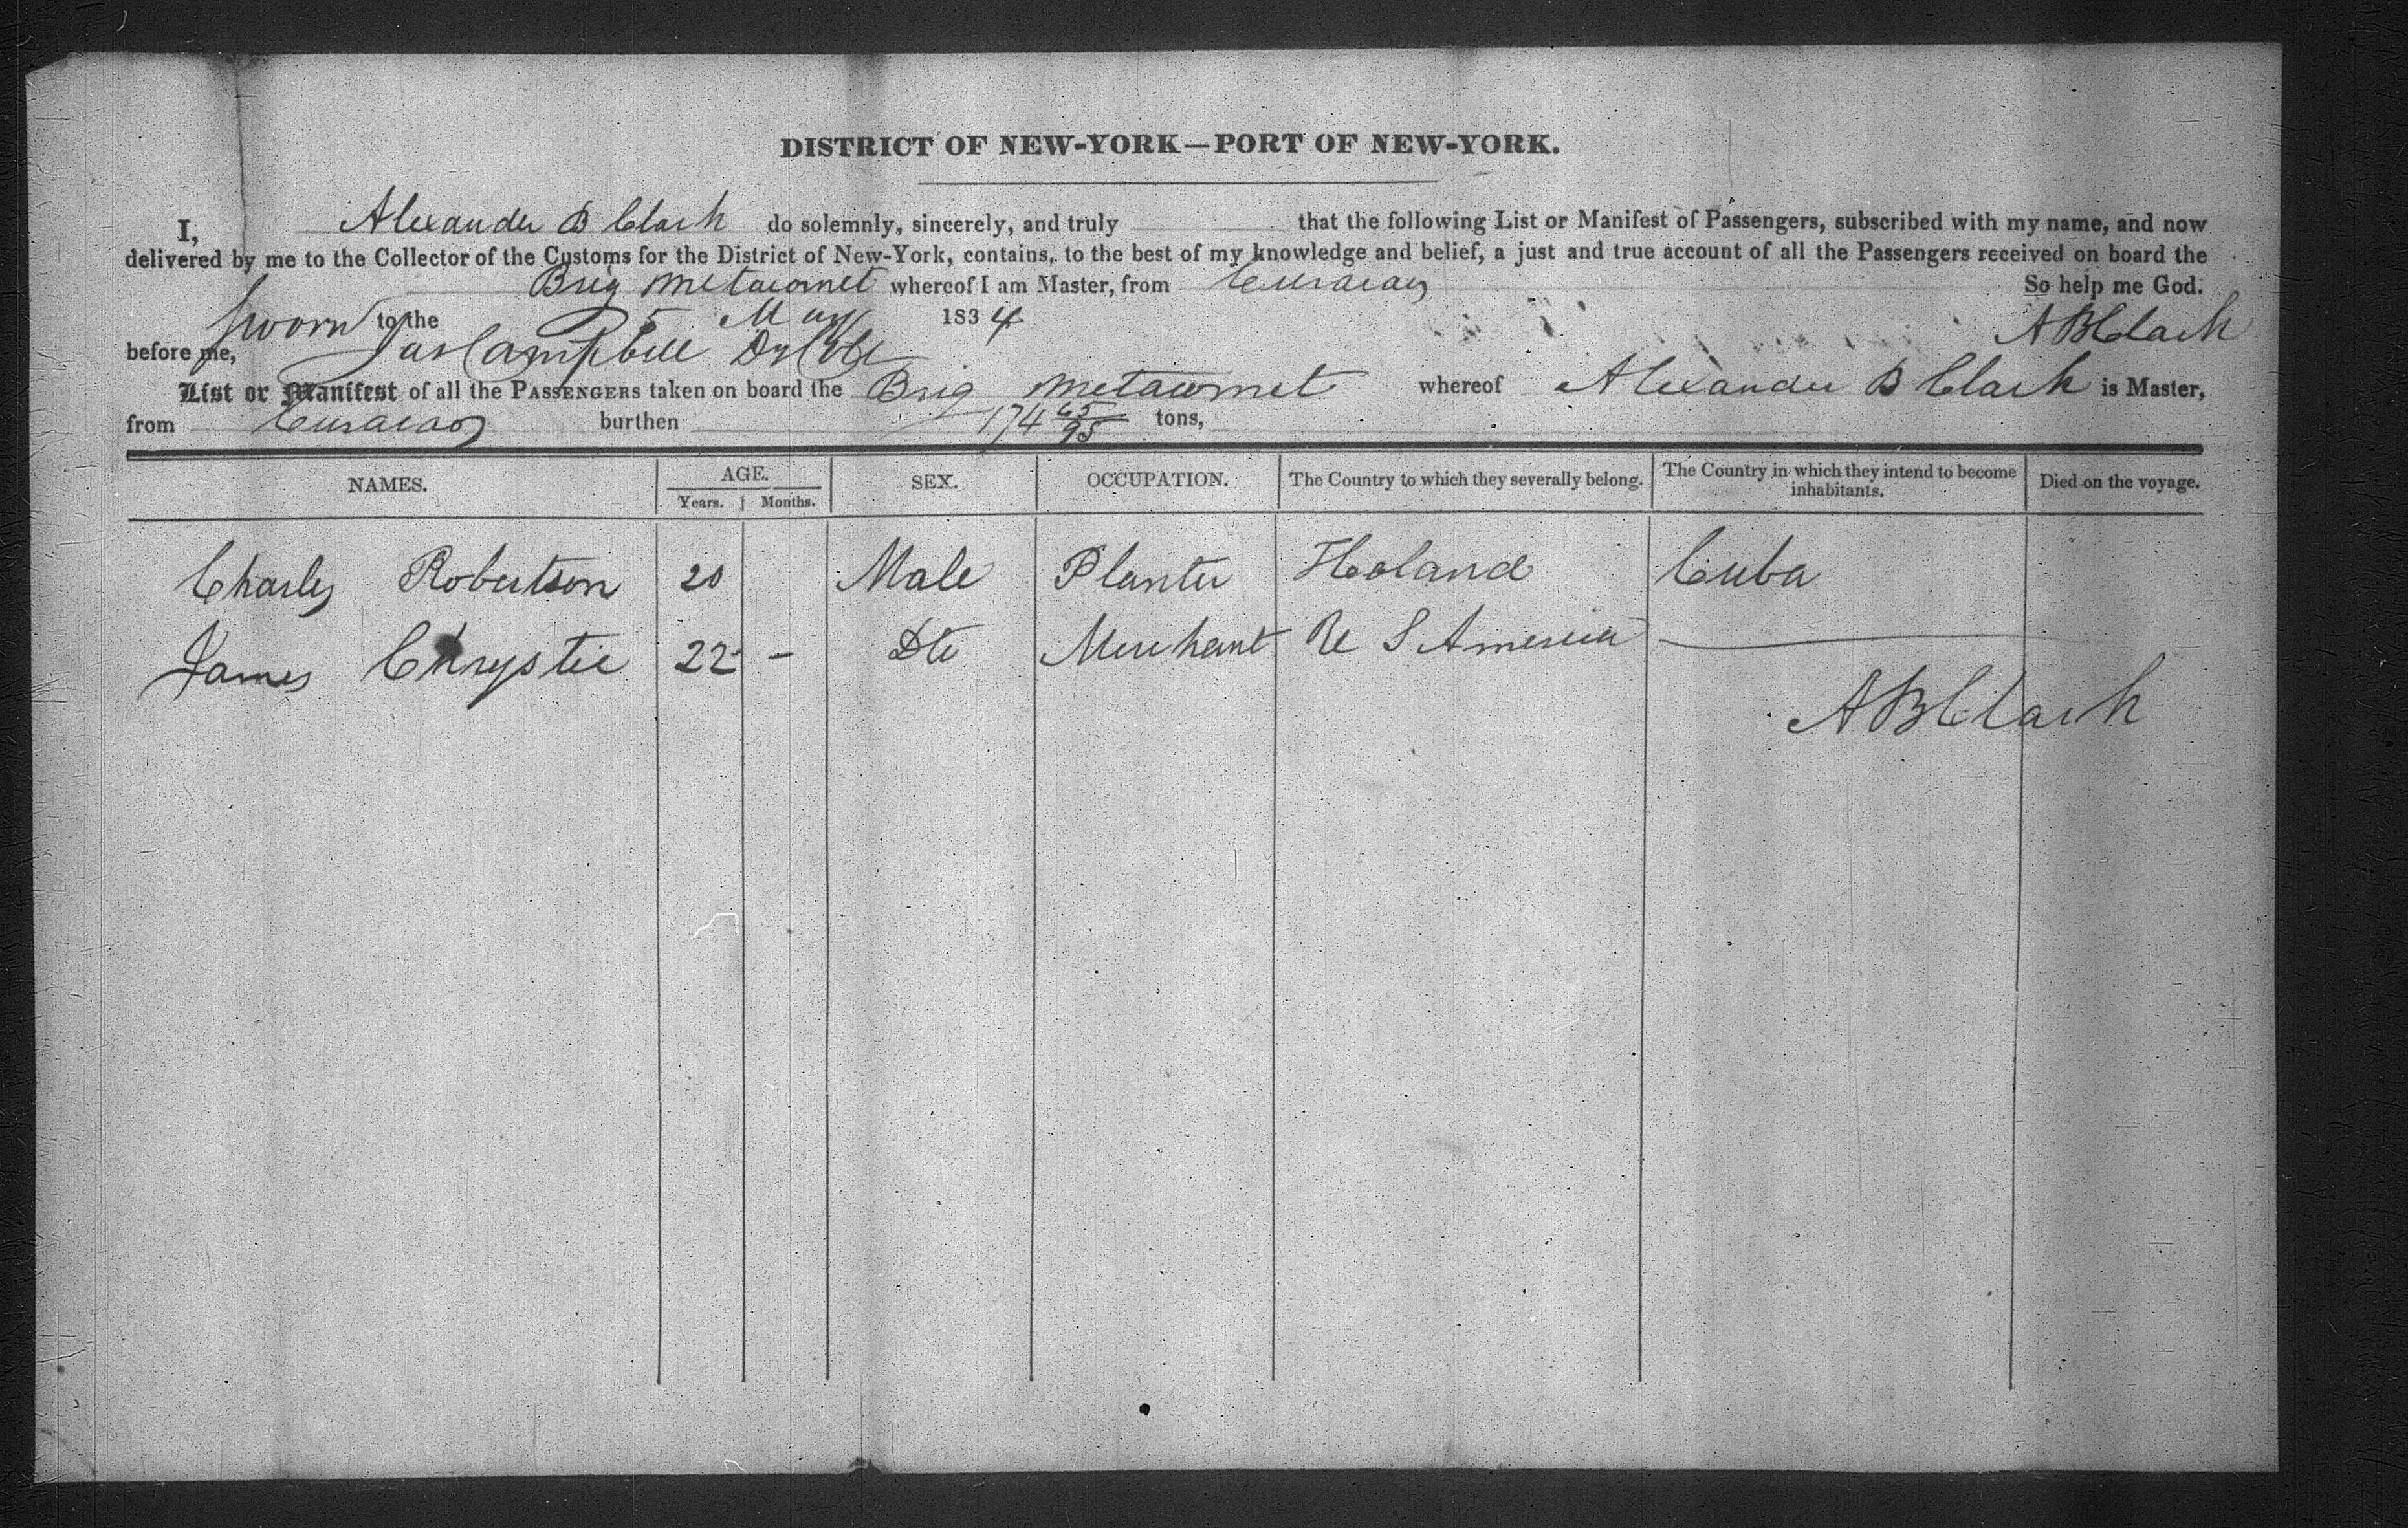 DISTRICT OF NEW-YORK—PORT OF NEW-YORK.
I, Alexander B Clark do solemnly, sincerely, and truly that the following List or Manifest of Passengers, subscribed with my name, and now
delivered by me to the Collector of the Customs for the District of New-York, contains, to the best of my knowledge and belief, a just and true account of all the Passengers received on board the
Brig Metacomet whereof I am Master, from Curacao So help me God.
Sworn to the 5 May 1834 A B Clark
before me, Jas Campbell
List or Manifest of all the PASSENGERS taken on board the Brig Metacomet whereof Alexander B Clark is Master,
from Curacao burthen 174 65/95 tons,
NAMES. AGE. SEX. OCCUPATION. The Country to which they severally belong. The Country in which they intend to become inhabitants. Died on the voyage.
Years. Months.
Charles Robertson 20 Male Planter Holand Cuba
James Chrystie 22 - Dto Merchant U S America
A B Clark